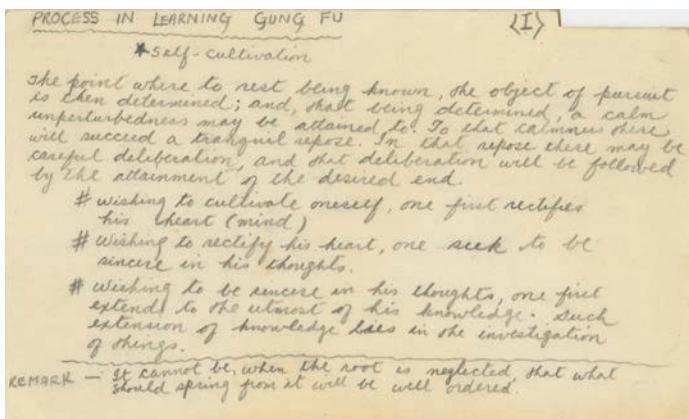 PROCESS IN LEARNING GUNG FU
(I)
*Self-cultivation
The point where to rest being known, the object of pursuit
is then determined; and, that being determined, a calm
unperturbedness may be attained to. To that calmness there
will succeed a tranquil repose. In that repose there may be
careful deliberation, and that deliberation will be followed
by the attainment of the desired end.
# Wishing to cultivate oneself, one first rectifies
his heart (mind)
# Wishing to rectify his heart, one seek to be
sincere in his thoughts.
# Wishing to be sincere in his thoughts, one first
extend to the utmost of his knowledge. Such
extension of knowledge lies in the investigation
of things.
REMARK — It cannot be, when the root is neglected, that what
should spring from it will be well ordered.